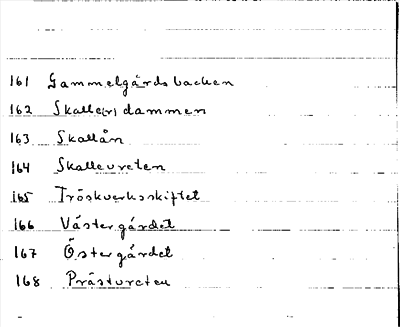 161 Gammelgårdsbacken
162 Skalle(n) dammen
163 Skallån
164 Skallevreten
165 Tröskverksskiftet
166 Västergärdet
167 Östergärdet
168 Prästvreten